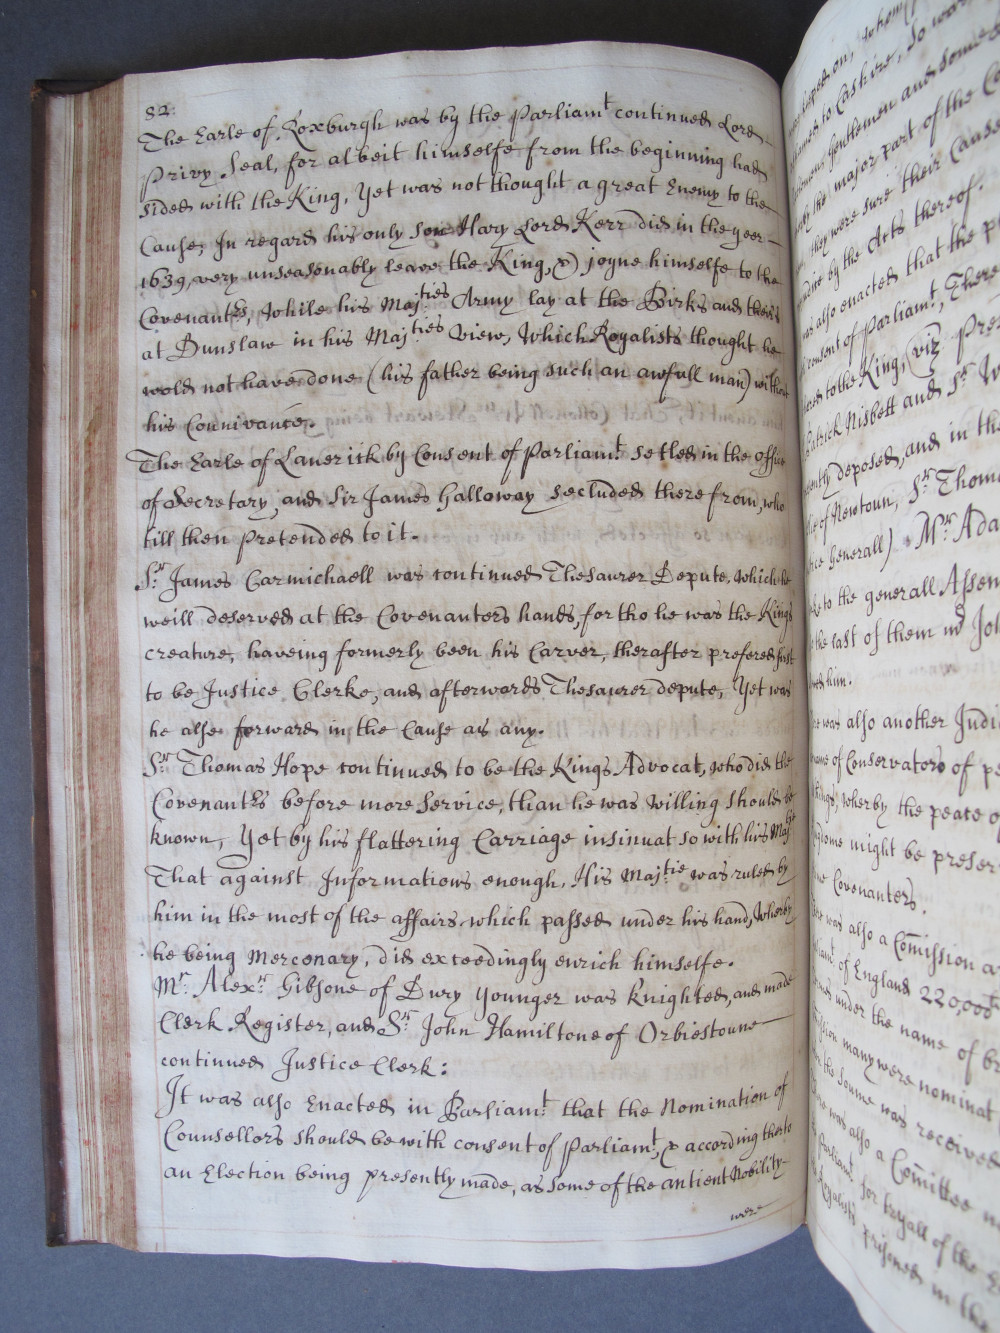 82.
The Earle of Roxburgh was by the Parliamt continued Lord
Privy Seal, for albeit himselfe from the beginning had
sided with the King, Yet was not thought a great Enemy to the
Cause, In regard his only Son Hary Lord Kerr did in the yeer
1639, very unseasonably leave the King, & joyne himselfe to the
Covenantrs, While his Majties Army lay at the Birks and theirs
at Dunslaw in his Majties View, Which Royalists thought he
wold not have done (his father being such an awfull man) without
his Connivance.
The Earle of Lanerick by Consent of Parliamt setled in the office
of Secretary, and Sir James Galloway secluded therefrom, who
till then pretended to it.
Sr James Carmichaell was continued Thesaurer Depute, Which he
weill deserved at the Covenanters hands, for tho he was the Kings
creature, haveing formerly been his Carver, therafter prefered first
to be Justice Clerke, and afterwards Thesaurer depute, Yet was
he also forward in the Cause as any.
Sr Thomas Hope continued to be the Kings Advocat, who did the
Covenantrs before more Service, than he was Willing should be
known, Yet by his flattering Carriage insinuat so with his Majtie
That against Informations enough, His Majtie was ruled by
him in the most of the affairs which passed under his hand, Wherby
he being Merconary, did exceedingly enrich himselfe.
Mr Alexr Gibsone of Dury Younger was Knighted, and made
Clerk Register, and Sr John Hamiltone of Orbiestoune
continued Justice Clerk:
It was also Enacted in Parliamt that the Nomination of
Counsellors should be with consent of Parliamt, & according therto
an Election being presently made, as some of the antient Nobility
were
major part of the
they were sure their Cause
by the Acts thereof.
also enacted that the
consent of Parliamt, There
to the King, (viz
Patrick Nisbett and Sr
deposed, and in the
of Newtoun, Sr Thom
Generall) Mr Ada
to the generall Assem
the last of them
him.
was also another
of Conservators of
Wherby the peace
might be preser
Covenanters.
was also a Commission
of England 220,000
under the name of
many were nominat
the soume was received
was also a Committee
Parliamt for tryall of the
Royalists prisoned in the